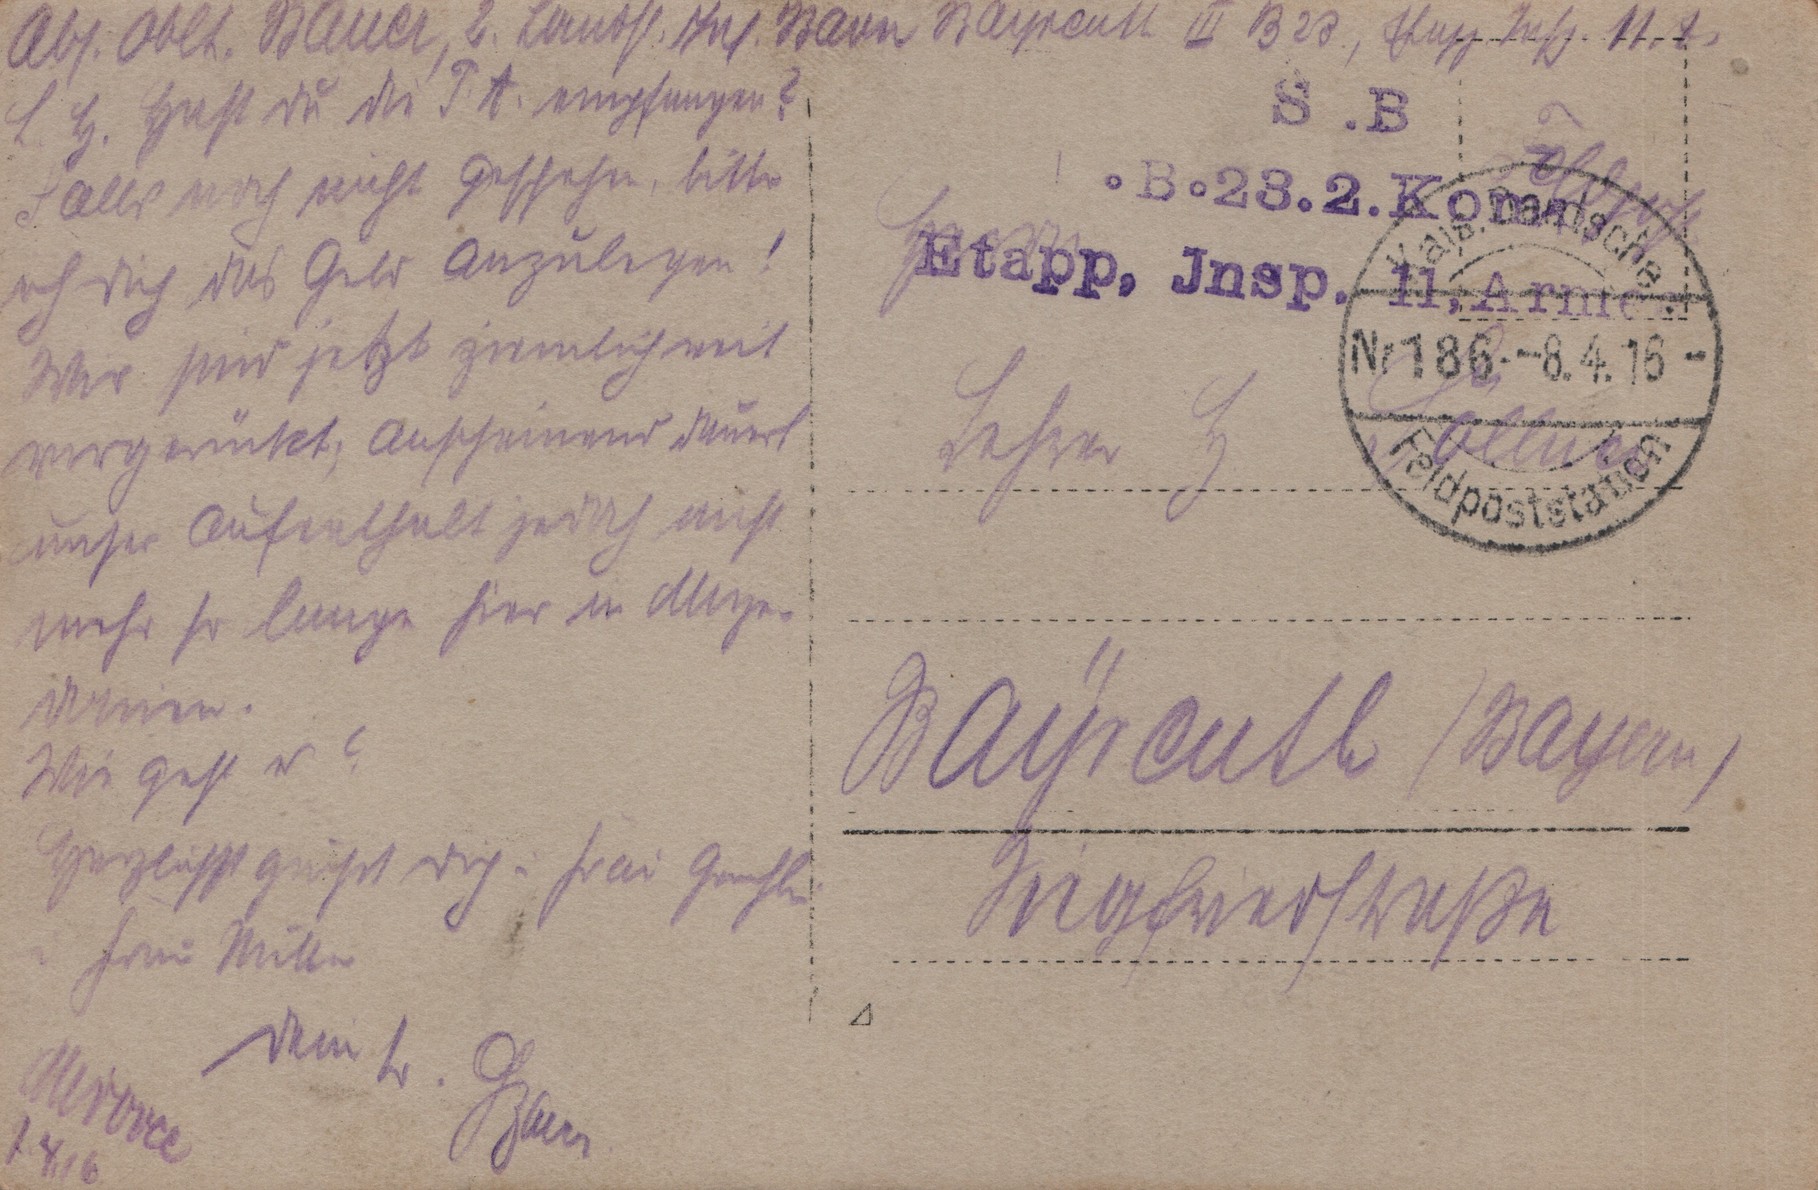 Abs. Oblt. Bauer, 2. Landst. Inf. Baon Bayreuth III B 23, Etapp. Insp. 11. A.
L. H. Hast du die T. A. empfangen?
Falls noch nicht geschehen, bitte
ich dich das Geld anzulegen!
Wir sind jetzt ziemlich weit
vorgerückt; anscheinend dauert
unser Aufenthalt jedoch nicht
mehr so lange hier in Maze-
donien.
Wie geht es?
Herzlichst grüßt dich u. Frau Gemahlin
Frau Müller
dein tr.
1.4.16
S .B
.B.23.2.Komp
Etapp, Jnsp. 11, Armee.
Kais. Deutsche
Nr 186. -8.4.16-
Feldpoststation
Feldpost
Herrn
Lehrer H.
Bayreuth (Bayern)
Siegfriedstraße